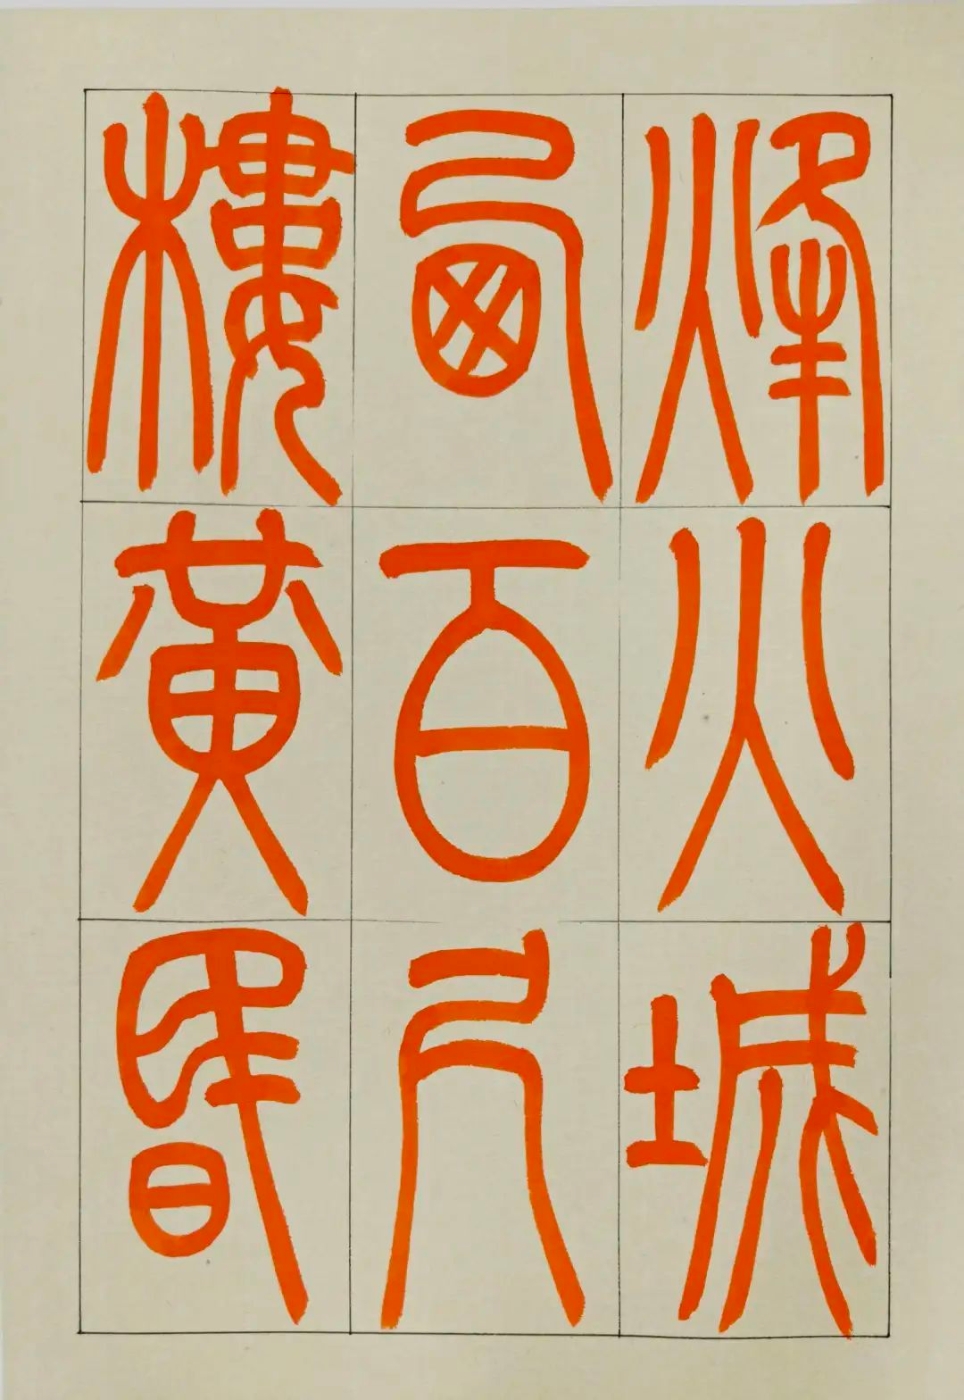 烽火城
西百尺
樓黃昬